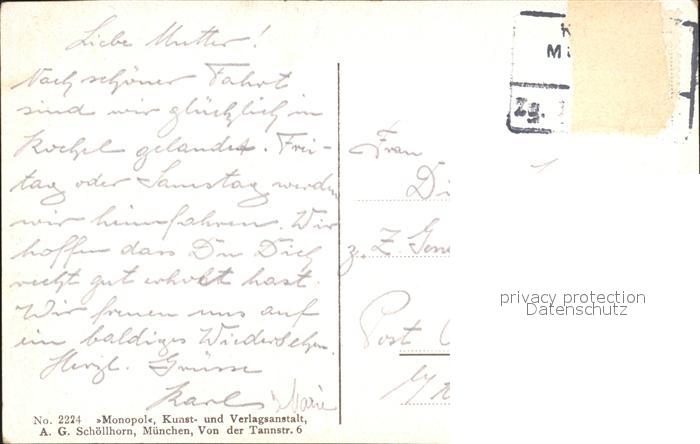 Liebe Mutter!
Nach schöner Fahrt
sind wir glücklich in
Kochel gelandet. Frei-
tag oder Samstag werden
wir heimfahren. Wir
hoffen dass Du Dich
recht gut erholt hast.
Wir freuen uns auf
ein baldiges Wiedersehen.
Herzl. Grüsse
Karl Marie
Zg.
Frau
Di
z. Z
Post
privacy protection
Datenschutz
No. 2224 »Monopol«, Kunst- und Verlagsanstalt,
A. G. Schöllhorn, München, Von der Tannstr. 6